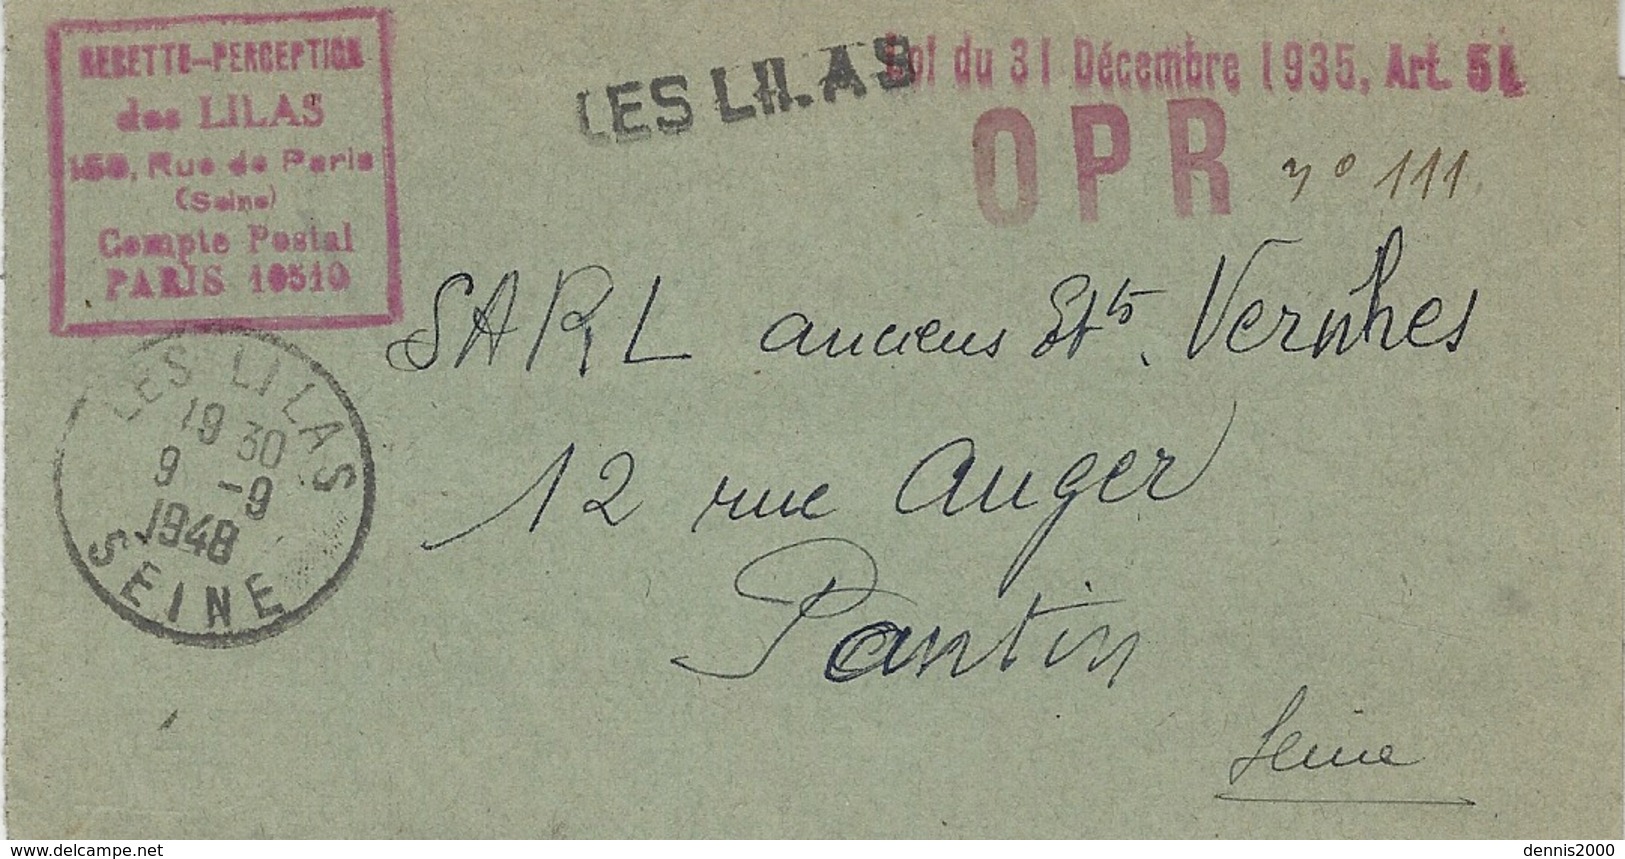 RECETTE-PERCEPTION
des LILAS
150, Rue de Paris
(Seine)
Compte Postal
PARIS 10510
LES LILAS
Loi du 31 Décembre 1935, Art. 51
OPR n° 111
SARL anciens Ets. Vernhes
12 rue Auger
Pantin
Seine
LES LILAS
19 30
9 -9
1948
SEINE
delcampe.net
dennis2000